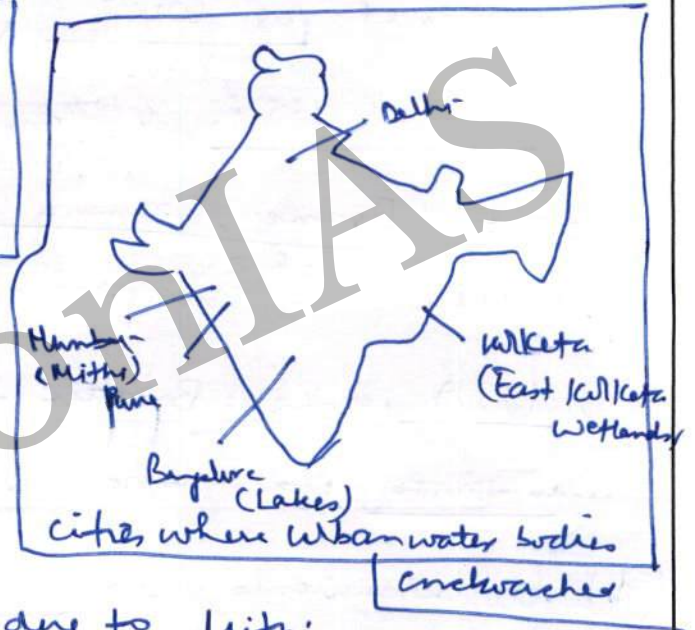 Delhi
Mumbai
(Mithi)
Pune
Kolkata
(East Kolkata
Wetlands)
Bangalore
(Lakes)
cities where urban water bodies
encroached
due to
onIAS